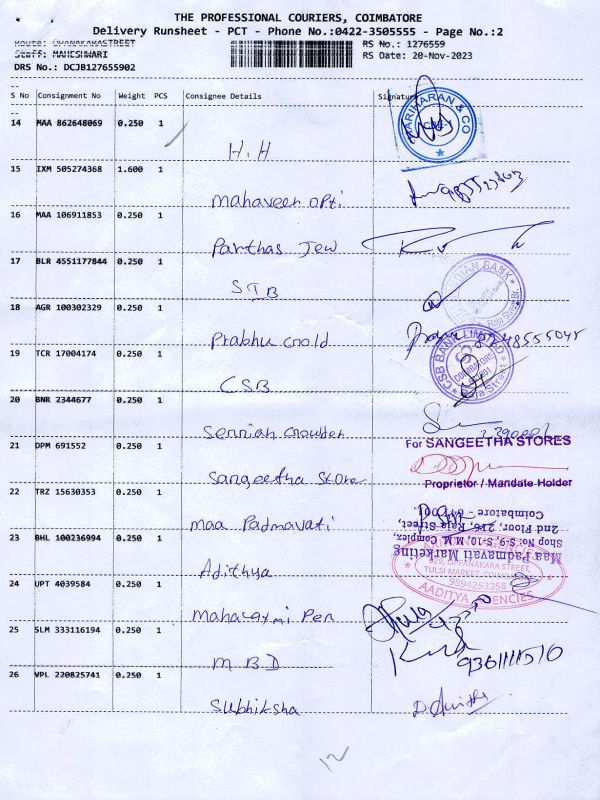 THE PROFESSIONAL COURIERS, COIMBATORE
Delivery Runsheet - PCT - Phone No.:0422-3505555 - Page No.:2
Route: OPANAKARASTREET
Staff: MAHESHWARI
DRS No.: DCJB127655902
RS No.: 1276559
RS Date: 20-Nov-2023
S No Consignment No Weight PCS Consignee Details Signature
14 MAA 862648069 0.250 1
H.H
HARIHARAN & CO
15 IXM 505274368 1.600 1
Mahaveer opti
16 MAA 106911853 0.250 1
Parthas Jew
17 BLR 4551177844 0.250 1
SIB
BANK
18 AGR 100302329 0.250 1
Prabhu Gold
8248555045
19 TCR 17004174 0.250 1
CSB
CSB BANK LIMITED
COIMBATORE
20 BNR 2344677 0.250 1
Senniah Gowder
21 DPM 691552 0.250 1
Sangeetha Store
For SANGEETHA STORES
Proprietor / Mandate Holder
22 TRZ 15630353 0.250 1
Maa Padmavati
Maa Padmavati Marketing
Shop No S-9, S-10, M.M. Complex,
2nd Floor, 216, Raja Street,
Coimbatore - 641 001.
23 BHL 100236994 0.250 1
Adithya
629, OPPANAKARA STREET,
TULSI MARKET, COIMBATORE
9894253358
AADITYA AGENCIES
24 UPT 4039584 0.250 1
Mahalaxmi Pen
25 SLM 333116194 0.250 1
M.B.D
9361111510
26 VPL 220825741 0.250 1
Subhiksha
12